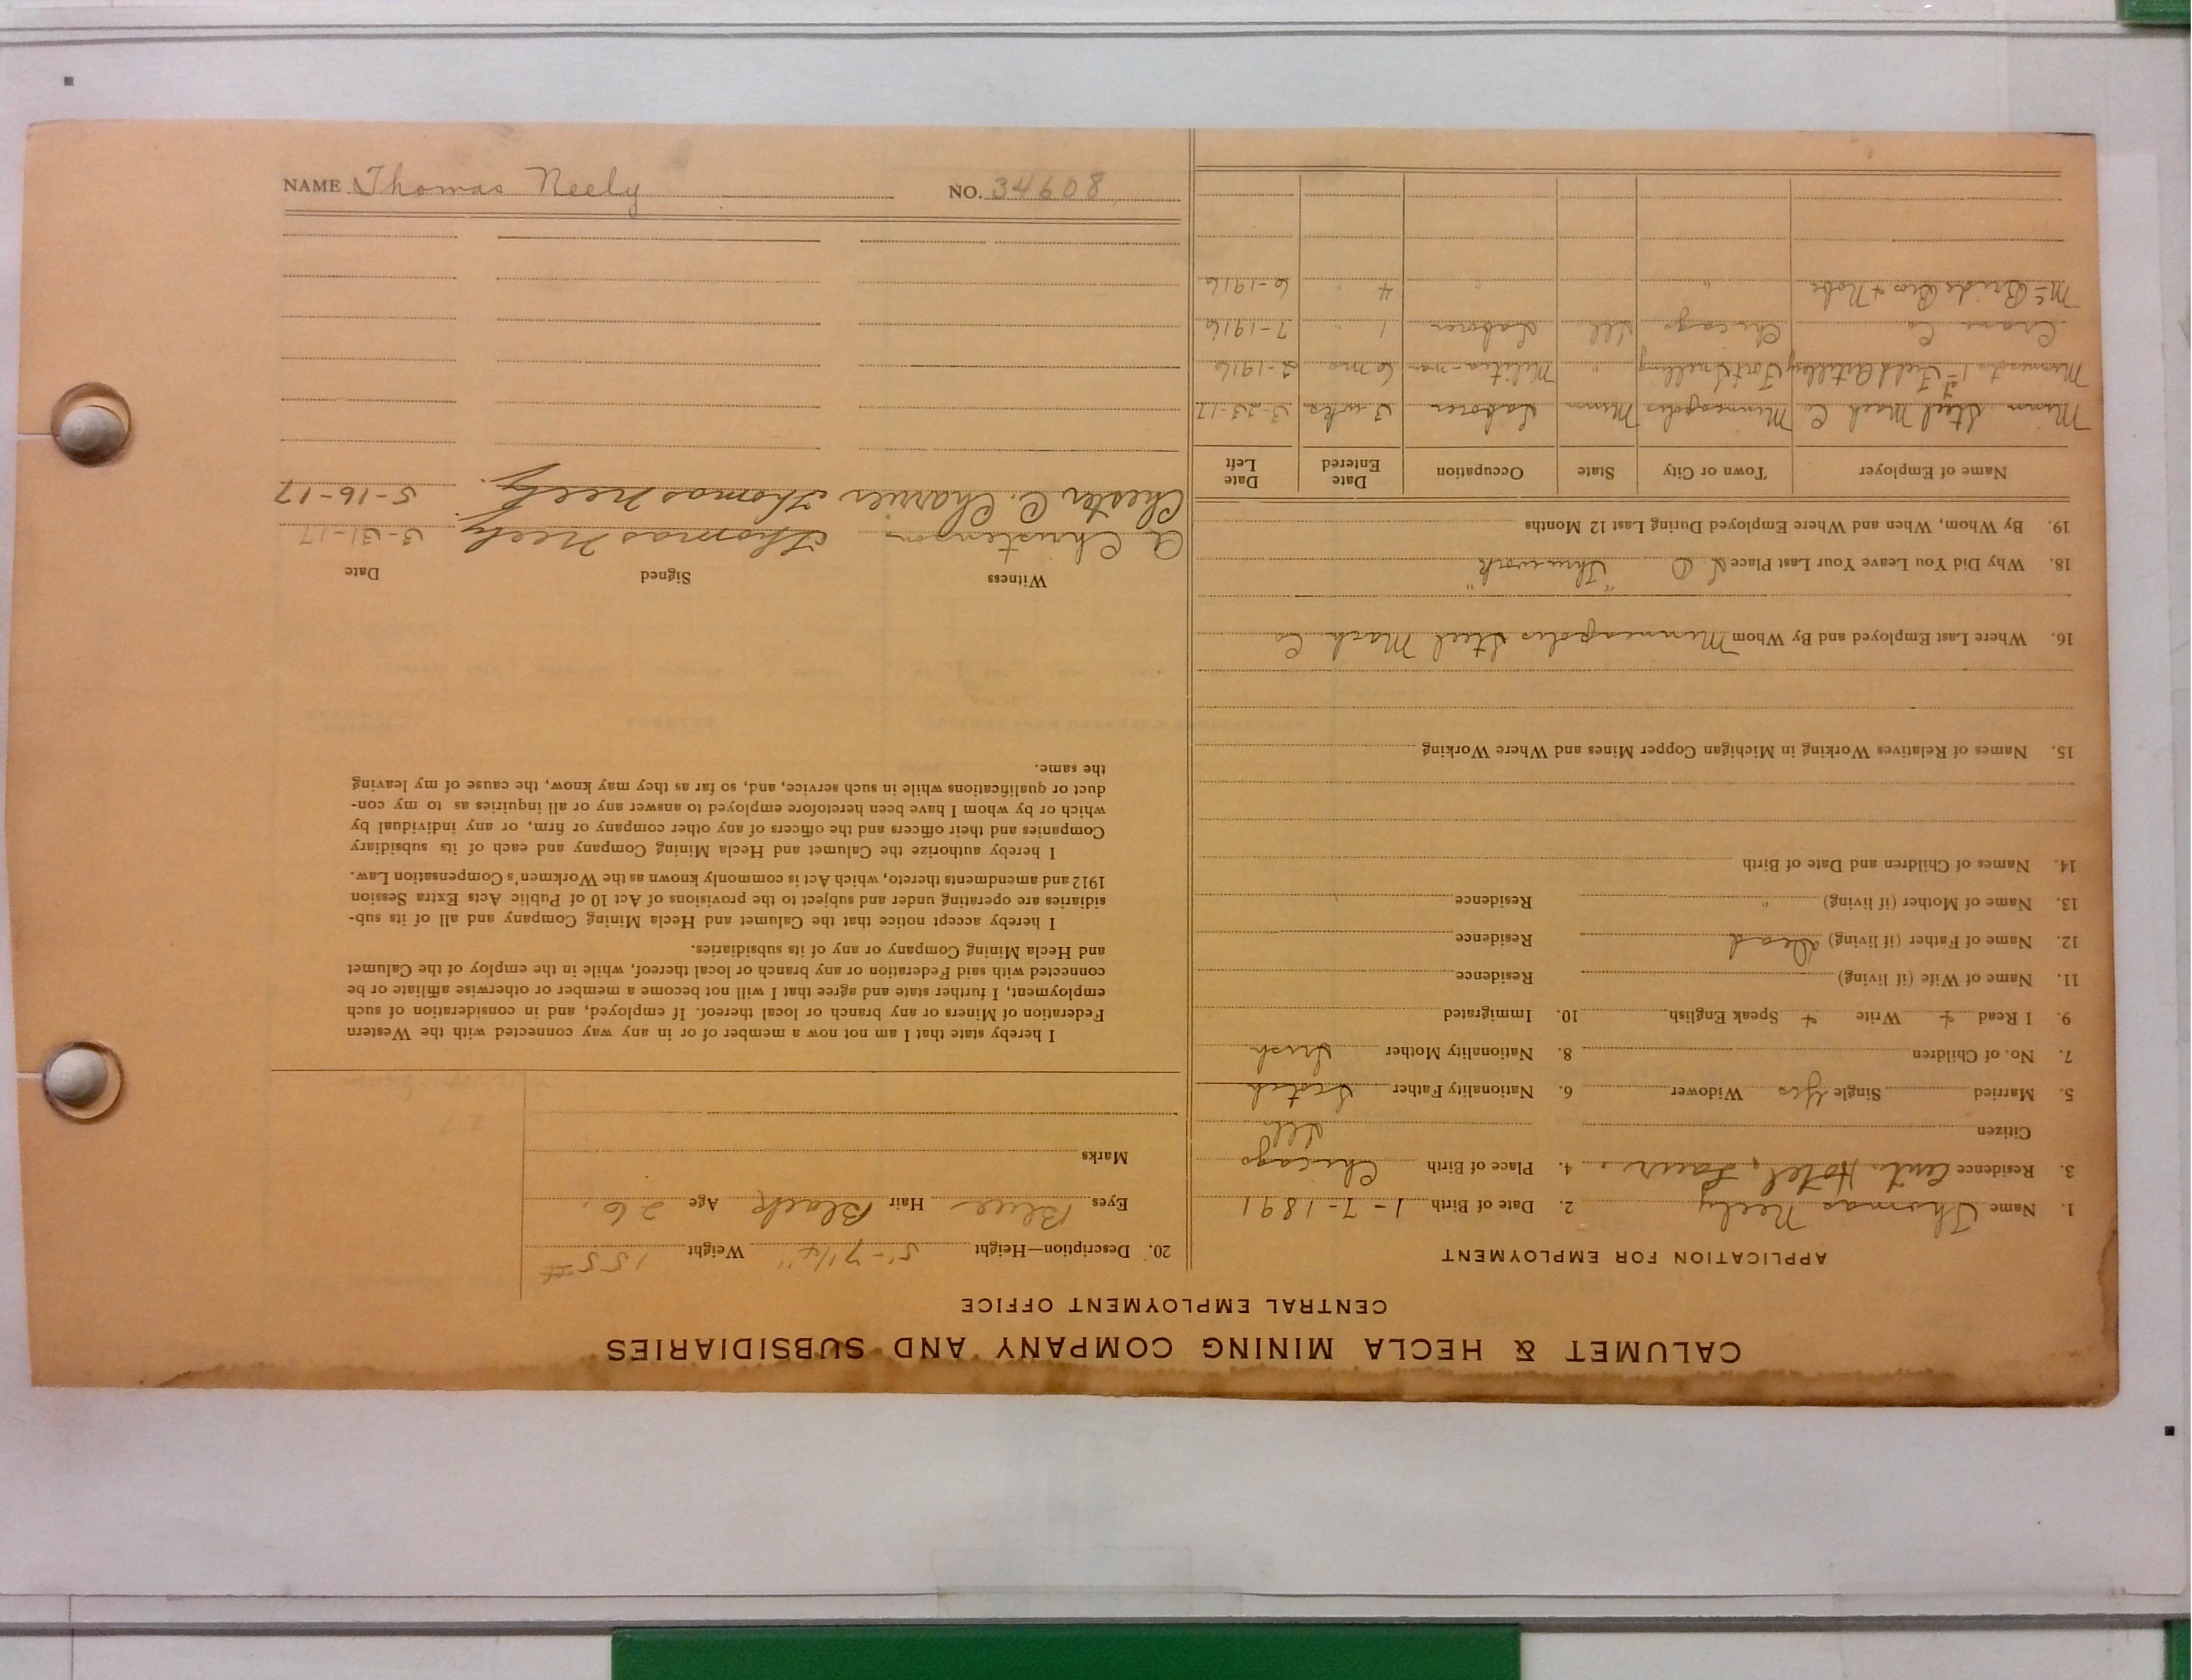 NAME Thomas Neely NO. 34608
CALUMET & HECLA MINING COMPANY AND SUBSIDIARIES
CENTRAL EMPLOYMENT OFFICE
APPLICATION FOR EMPLOYMENT
1. Name Thomas Neely 2. Date of Birth 1-7-1891
3. Residence Cent. Hotel, 4. Place of Birth Chicago
Citizen Ill
5. Married Single Yes Widower 6. Nationality Father Scotch
7. No. of Children 8. Nationality Mother Irish
9. I Read + Write + Speak English 10. Immigrated
11. Name of Wife (if living) Residence
12. Name of Father (if living) Dead Residence
13. Name of Mother (if living) " Residence
14. Names of Children and Date of Birth
15. Names of Relatives Working in Michigan Copper Mines and Where Working
16. Where Last Employed and By Whom Minneapolis Steel Mach Co
18. Why Did You Leave Your Last Place "Thru work"
19. By Whom, When and Where Employed During Last 12 Months
Name of Employer Town or City State Occupation Date Entered Date Left
Minn Steel Mach Co Minneapolis Minn Laborer 3 wks 3-23-17
Minnesota 1st Field Artillery Fort Snelling " Militia-man 6 mo 2-1916
Crane Co Chicago Ill Laborer 1 " 7-1916
McBride Bros + " " " 4 " 6-1916
20. Description—Height 5'-7 1/4" Weight 155#
Eyes Blue Hair Black Age 26.
Marks
I hereby state that I am not now a member of or in any way connected with the Western
Federation of Miners or any branch or local thereof. If employed, and in consideration of such
employment, I further state and agree that I will not become a member or otherwise affiliate or be
connected with said Federation or any branch or local thereof, while in the employ of the Calumet
and Hecla Mining Company or any of its subsidiaries.
I hereby accept notice that the Calumet and Hecla Mining Company and all of its sub-
sidiaries are operating under and subject to the provisions of Act 10 of Public Acts Extra Session
1912 and amendments thereto, which Act is commonly known as the Workmen's Compensation Law.
I hereby authorize the Calumet and Hecla Mining Company and each of its subsidiary
Companies and their officers and the officers of any other company or firm, or any individual by
which or by whom I have been heretofore employed to answer any or all inquiries as to my con-
duct or qualifications while in such service, and, so far as they may know, the cause of my leaving
the same.
Witness Signed Date
A Christenson Thomas Neely. 3-31-17
Chester C. Charrier Thomas Neely. 5-16-17